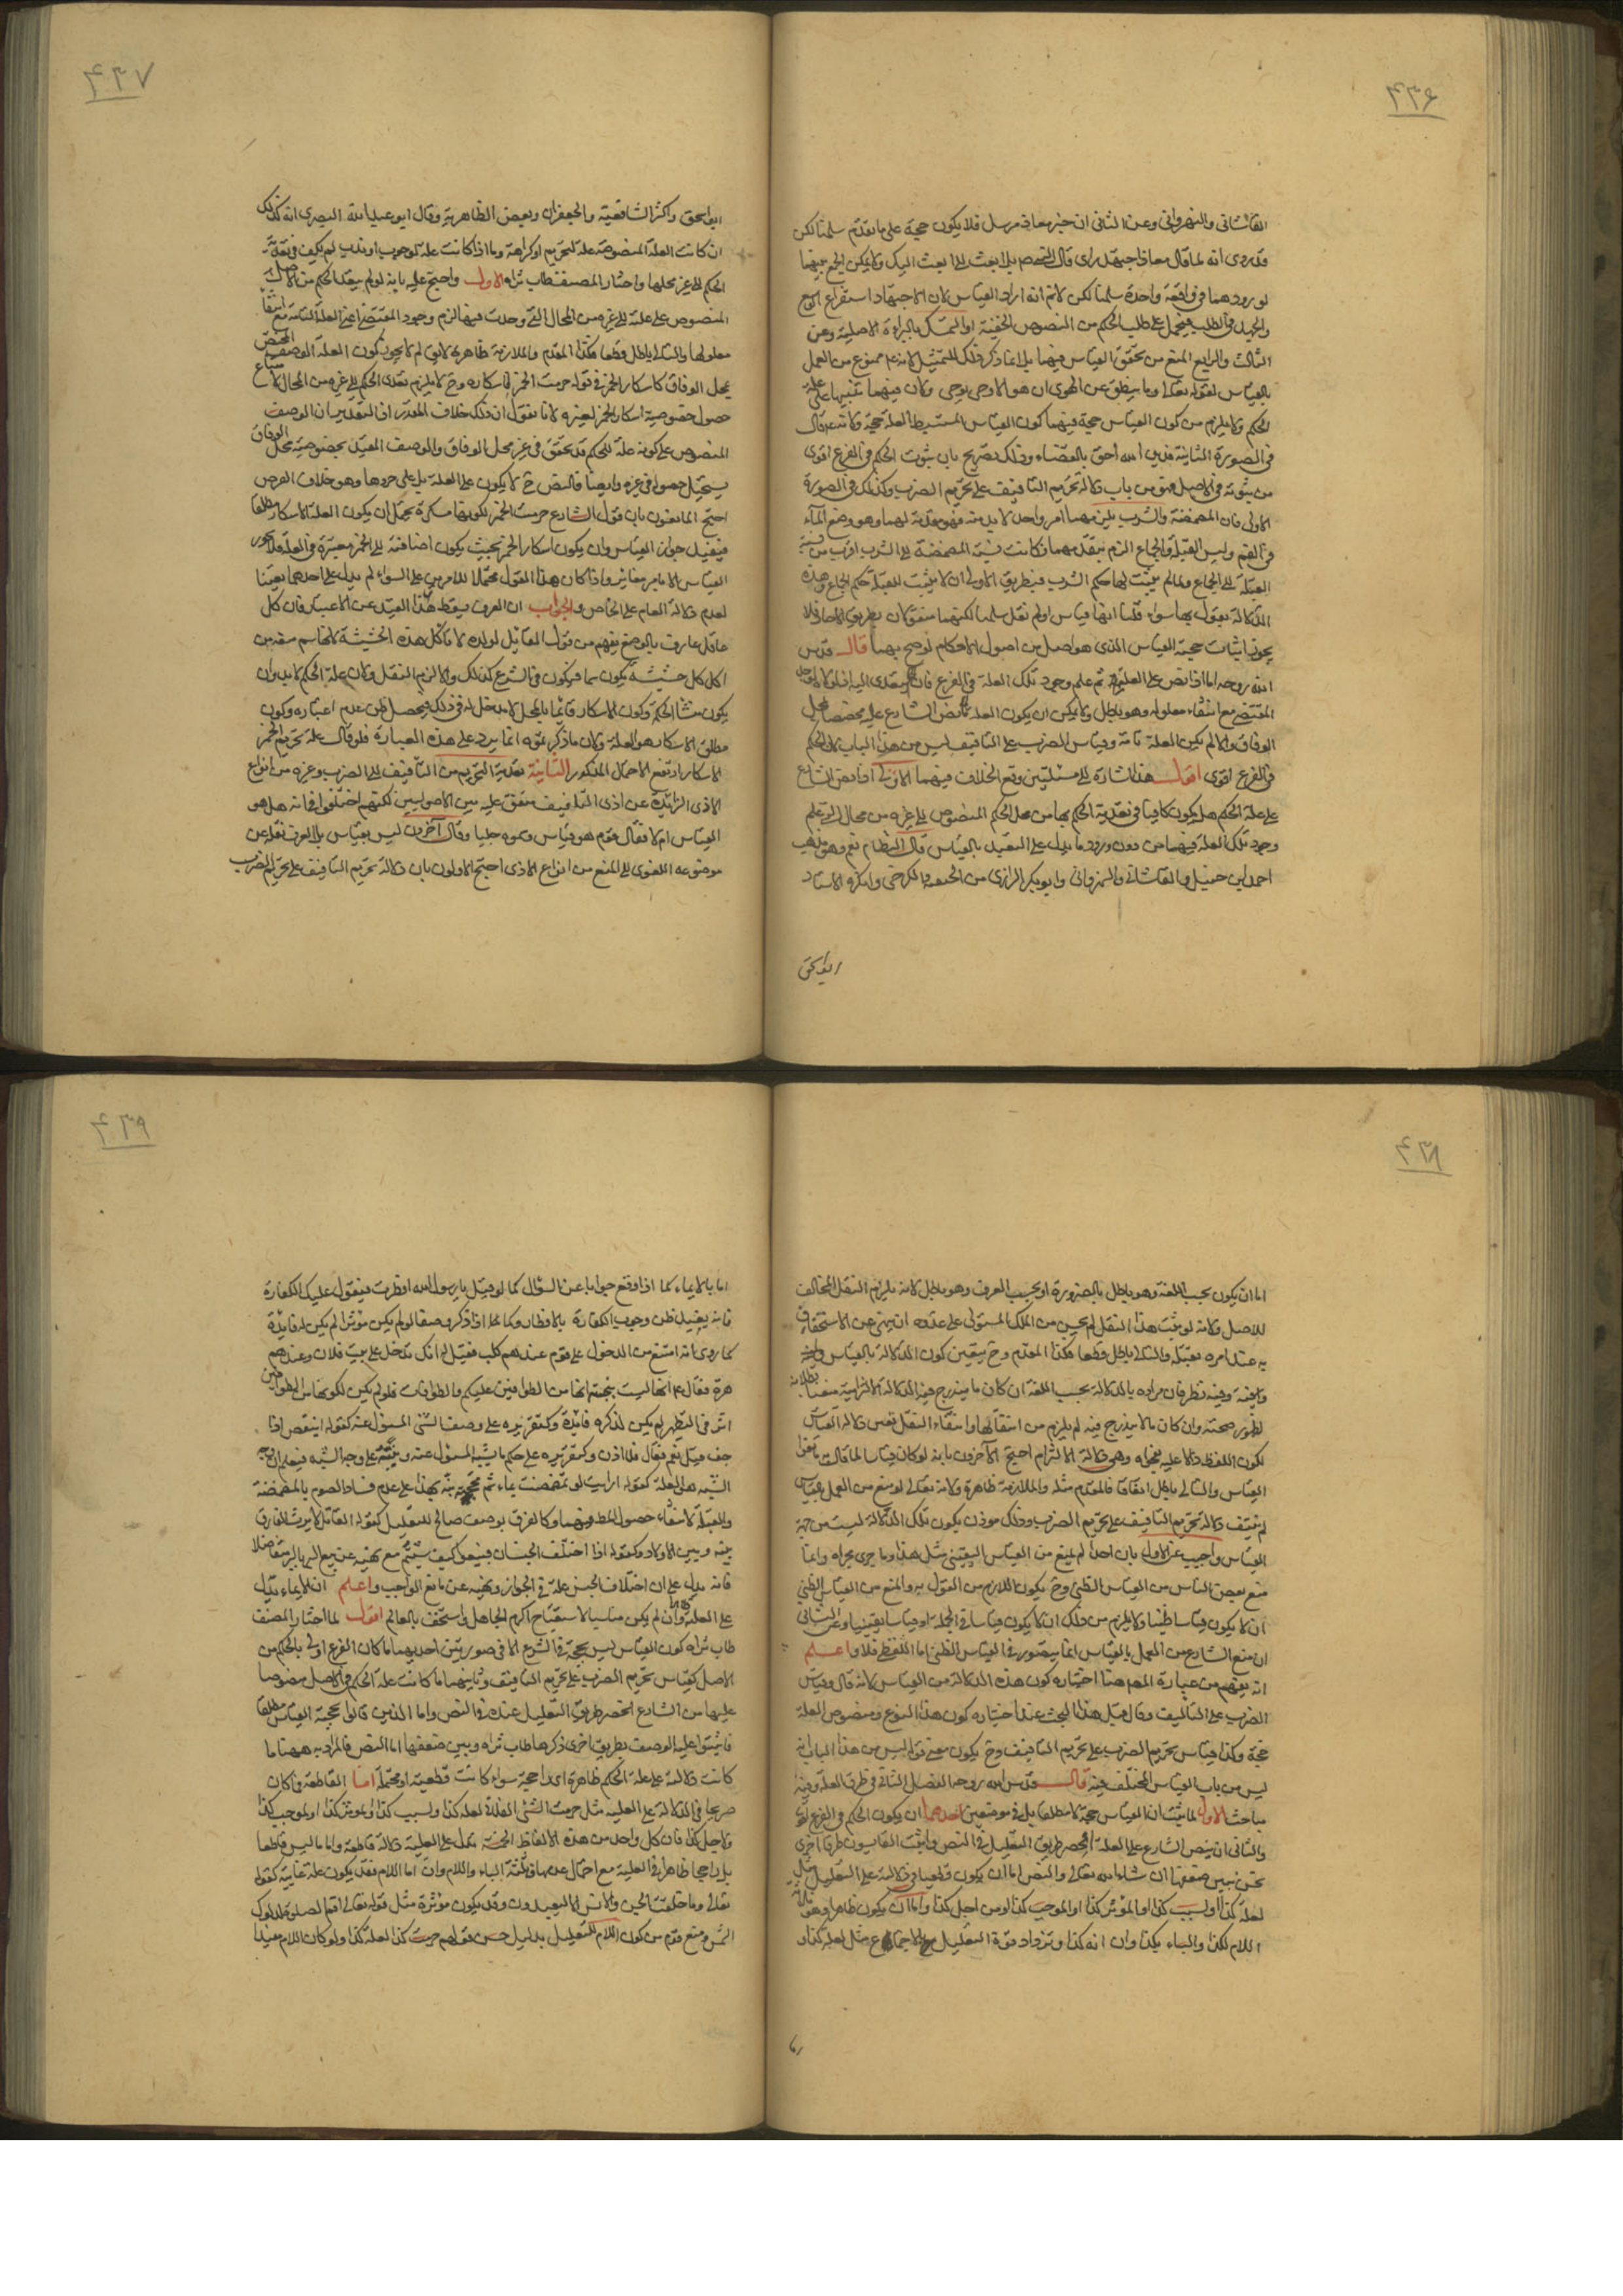 ۴۳۶
القاشانى والنهروانى وعن الثانى ان خبر معاذ مرسل فلا يكون حجة على ما تقدم سلمنا لكن
قد روى انه لما قال معاذ اجتهد رأى قال النبى صلعم بل ابعث الى ابعث اليك ولا يمكن الجمع بينهما
لورودهما فى واقعة واحدة سلمنا لكن لا نم انه اراد القياس لان الاجتهاد استفراغ الوسع
والجهد فى الطلب فيحمل على طلب الحكم من النصوص الخفية او التمسك بالبراءة الاصلية وعن
الثالث والرابع المنع من تحقق القياس فيهما بل انما ذكر ذلك للتمثيل لانه عم ممنوع من العمل
بالقياس لقوله تعالى وما ينطق عن الهوى ان هو الا وحى يوحى ولان فيهما تنبيها على علة
الحكم ولا يلزم من كون القياس حجة فيهما كون القياس المستنبط العلة حجة ولانه عم قال
فى الصورة الثانية فدين الله احق بالقضاء وذلك تصريح بان ثبوت الحكم فى الفرع اقوى
من ثبوته فى الاصل فهو من باب دلالة تحريم التأفيف على تحريم الضرب وكذلك فى الصورة
الاولى فان المضمضة والشرب يلزمهما امر واحد لا بد منه فهو مقدمة لهما وهو وضع الماء
فى الفم وليس القبلة والجماع الزم بتقديمهما فكانت نسبة المضمضة الى الشرب اقرب من نسبة
القبلة الى الجماع ولما لم يثبت لها حكم الشرب فبطريق الاولى ان لا يثبت للقبلة حكم الجماع وهذه
الدلالة نقول بها سواء قلنا انها قياس او لم نقل سلمنا لكنهما منقولان بطريق الآحاد فلا
يجوز اثبات حجية القياس الذى هو اصل من اصول الاحكام لوضح بهما قال قدس
الله روحه اما اذا نص على العلية ثم علم وجود تلك العلة فى الفرع فان الحكم يتعدى اليه اذ لولاه لوجد
المقتضى مع انتفاء معلوله وهو باطل ولا يمكن ان يكون العلة مما نص الشارع عليه مختصا بمحل
الوفاق والا لم يكن العلة تامة وقياس الضرب على التأفيف ليس من هذا الباب لان الحكم
فى الفرع اقوى اقول هذا اشارة الى مسئلتين وقع الخلاف فيهما الاولى اذا نص الشارع
على علة الحكم هل يكون كافيا فى تعدية الحكم بها من محل الحكم المنصوص الى غيره من محال التى علم
وجود تلك العلة فيها من دون ورود ما يدل على التعبد بالقياس قال النظام نعم وهو مذهب
احمد ابن حنبل والقاشانى والنهروانى وابو بكر الرازى من الحنفية والكرخى وانكره الاستاد
ابو اسحق
۴۳۷
ابو اسحق واكثر الشافعية والجعفران وبعض الظاهرية وقال ابو عبد الله البصرى انه كذلك
ان كانت العلة المنصوصة علة لتحريم او كراهة وما اذا كانت علة لوجوب او ندب لم يكف فى تعدية
الحكم الى غير محلها واختار المصنف طاب ثراه الاول واحتج عليه بانه لو لم يتعد الحكم من الاصل
المنصوص على علته الى غيره من المحال التى وجدت فيها لزم وجود المقتضى اعنى العلة التامة مع انتفاء
معلولها والتالى باطل قطعا فكذا المقدم والملازمة ظاهرة لا يق لم لا يجوز كون العلة الوصف المختص
بمحل الوفاق كاسكار الخمر فى قوله حرمت الخمر لاسكاره وح لا يلزم تعدى الحكم الى غيره من المحال لامتناع
حصول خصوصية اسكار الخمر لغيره لانا نقول ان ذلك خلاف المقدر اذ التقدير ان الوصف
المنصوص على كونه علة للحكم قد تحقق فى غير محل الوفاق والوصف المقيد بخصوصية محل الوفاق
يستحيل حصوله فى غيره وايضا فالنص ح لا يكون على العلة بل على جزءها وهو خلاف الفرض
احتج المانعون بان قول الشارع حرمت الخمر لكونها مسكرة يحتمل ان يكون العلة الاسكار مطلقا
فيفيد جواز القياس وان يكون اسكار الخمر بحيث يكون اضافته الى الخمر معتبرة فى العلة فلا يجوز
القياس الا بامر مغاير واذا كان هذا القول محتملا للامرين على السواء لم يدل على احدهما تعيينا
لعدم دلالة العام على الخاص والجواب ان العرف يسقط هذا القيد عن الاعتبار فان كل
عاقل عارف بالوضع يفهم من قول القائل لولده لا تأكل هذه الحشيشة لانها سم منعه من
اكل كل حشيشة يكون سما فيكون فى الشرع كذلك والا لزم النقل ولان علة الحكم لا بد وان
يكون منشأ الحكمة وكون الاسكار قائما بالمحل لا مدخل له فى ذلك فيحصل ظن عدم اعتباره وكون
مطلق الاسكار هو العلة ولان ما ذكرتموه انما يرد على هذه العبارة فلو قال علة تحريم الخمر
الاسكار ارتفع الاحتمال المذكور الثانية تعدية التحريم من التأفيف الى الضرب وغيره من انواع
الاذى الزائدة عن اذى التأفيف متفق عليه بين الاصوليين لكنهم اختلفوا فى انه هل هو
القياس ام لا فقال قوم هو قياس وسموه جليا وقال آخرون ليس بقياس بل العرف نقله عن
موضوعه اللغوى الى المنع من انواع الاذى احتج الاولون بان دلالة تحريم التأفيف على تحريم الضرب
۴۳۸
اما ان يكون بحسب اللغة وهو باطل بالضرورة او بحسب العرف وهو باطل لانه يلزم النقل المخالف
للاصل ولانه لو ثبت هذا النقل لم يحسن من الملك المستولى على عدوه ان ينهى عن الاستخفاف
به عند امره بقتله والتالى باطل قطعا فكذا المقدم وح يتعين كون الدلالة بالقياس
وفيه نظر فان مراده بالدلالة بحسب اللغة ان كان ما يندرج فيه الدلالة الالتزامية منعنا بطلانه
لظهور صحته وان كان ما لا يندرج فيه لم يلزم من انتفائها وانتفاء النقل تعين دلالة القياس
لكون اللفظ دالا عليه بفحواه وهى دلالة الالتزام احتج الآخرون بانه لو كان قياسا لما قال به نافوا
القياس والتالى باطل اتفاقا فالمقدم مثله والملازمة ظاهرة ولانه تعالى لو منع من العمل بالقياس
لم ينتف دلالة تحريم التأفيف على تحريم الضرب وذلك موذن بكون تلك الدلالة ليست من جهة
القياس واجيب عن الاول بان احدا لم يمنع من القياس اليقينى مثل هذا وما جرى مجراه وانما
منع بعض الناس من القياس الظنى وح يكون اللازم من القول به والمنع من القياس الظنى
ان لا يكون قياسا ظنيا ولا يلزم من ذلك ان لا يكون قياسا فى الجملة او قياسا يقينيا وعن الثانى
ان منع الشارع من العمل بالقياس انما يتصور فى القياس الظنى اما القطعى فلا واعلم
انه يفهم من عبارة المص هنا اختياره كون هذه الدلالة من القياس لانه قال وقياس
الضرب على التأفيف وقال قبل هذا البحث عند اختياره كون هذا النوع ومنصوص العلة
حجة وكذا قياس تحريم الضرب على تحريم التأفيف وح يكون معنى قوله ليس من هذا الباب انه
ليس من باب القياس المختلف فيه قال قدس الله روحه الفصل الثانى فى طرق العلة وفيه
مباحث الاول لما ثبت ان القياس حجة لا مطلقا بل فى موضعين احدهما ان يكون الحكم فى الفرع اقوى
والثانى ان ينص الشارع على العلة انحصر طريق التعليل فى النص واثبت القايسون طرقا اخرى
نحن نبين ضعفها ان شاء الله تعالى والنص اما ان يكون قطعيا فى دلالته على التعليل مثل
لعلة كذا او لسبب كذا او المؤثر كذا او الموجب كذا او من اجل كذا واما ان يكون ظاهرا وهو ثلاثة
اللام لكذا والباء بكذا وان انه كذا وتزداد قوة التعليل مع الاجتماع مثل لعلة كذا و
اما
۴۳۹
اما بالايماء كما اذا وقع جوابا عن السؤال كما لو قيل يا رسول الله افطرت فيقول عليك الكفارة
فانه يفيد ظن وجوب الكفارة بالافطار وكما اذا ذكر وصفا لو لم يكن مؤثرا لم يكن له فائدة
كما روى انه امتنع من الدخول على قوم عندهم كلب فقيل له انك تدخل على بيت فلان وعندهم
هرة فقال عم انها ليست بنجسة انها من الطوافين عليكم والطوافات فلو لم يكن لكونها من الطوافين
اثر فى التطهير لم يكن لذكره فائدة وكتقريره على وصف الشئ المسؤل عنه كقوله اينقص اذا
جف قيل نعم فقال فلا اذن وكتقريره على حكم ما يشبه المسؤل عنه وينبه على وجه الشبه فيعلم ان وجه
الشبه هى العلة كقوله ارأيت لو تمضمضت بماء ثم مججته نبه بهذا على عدم فساد الصوم بالمضمضة
والقبلة لانتفاء حصول المطلوب فيهما وكالفرق بوصف صالح للتعليل كقوله القاتل لا يرث للفارق
بينه وبين الاولاد وكقوله اذا اختلف الجنسان فبيعوا كيف شئتم مع نهيه عن بيع البر بالبر متفاضلا
فانه يدل على ان اختلاف الجنس علة فى الجواز ونهيه عن مانع الواجب واعلم ان الايماء يدل
على العلة وان لم يكن مناسبا لاستقباح اكرم الجاهل واستخف بالعالم اقول لما اختار المصنف
طاب ثراه كون القياس ليس بحجة فى الشرع الا فى صورتين احديهما ما كان الفرع اولى بالحكم من
الاصل كقياس تحريم الضرب على تحريم التأفيف وثانيهما ما كانت علة الحكم فى الاصل منصوصا
عليها من الشارع انحصر طريق التعليل عنده فى النص واما الذين قالوا بحجية القياس مطلقا
فاثبتوا علية الوصف بطريق اخرى ذكرها طاب ثراه وبين ضعفها اما النص فالمراد به هيهنا ما
كانت دلالته على علة الحكم ظاهرة اى راجحة سواء كانت قطعية او محتملة اما القاطعة فما كان
صريحا فى الدلالة على العلية مثل حرمت الشئ الفلانى لعلة كذا ولسبب كذا او لمؤثر كذا او لموجب كذا
ولاجل كذا فان كل واحد من هذه الالفاظ الخمسة يدل على العلية دلالة قاطعة واما ما ليس قاطعا
بل راجحا ظاهرا فى العلية مع احتمال عدمها فثلثة الباء واللام وان اما اللام فقد يكون علة غايية كقوله
تعالى وما خلقت الجن والانس الا ليعبدون وقد يكون مؤثرة مثل قوله تعالى اقم الصلوة لدلوك
الشمس ومنع قوم من كون اللام للتعليل بدليل حسن قولهم حرمت كذا لعلة كذا ولو كان اللام مفيدا